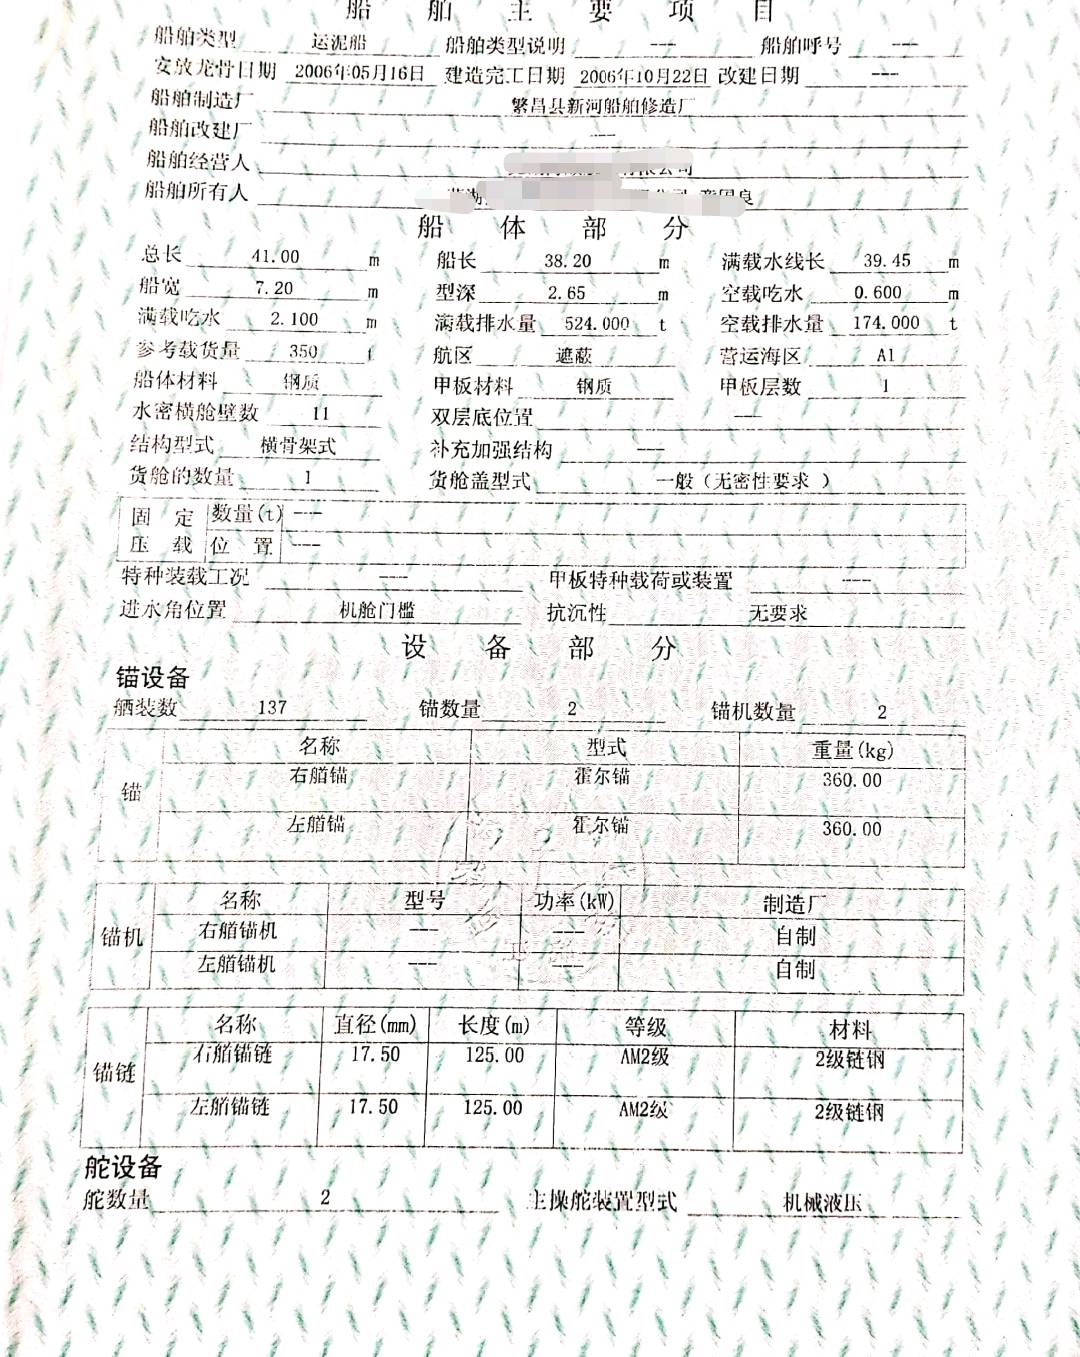 船舶主要项目
船舶类型 运泥船 船舶类型说明 --- 船舶呼号 ---
安放龙骨日期 2006年05月16日 建造完工日期 2006年10月22日 改建日期 ---
船舶制造厂 繁昌县新河船舶修造厂
船舶改建厂 ---
船舶经营人 有限公司
船舶所有人
船体部分
总长 41.00 m 船长 38.20 m 满载水线长 39.45 m
船宽 7.20 m 型深 2.65 m 空载吃水 0.600 m
满载吃水 2.100 m 满载排水量 524.000 t 空载排水量 174.000 t
参考载货量 350 t 航区 遮蔽 营运海区 A1
船体材料 钢质 甲板材料 钢质 甲板层数 1
水密横舱壁数 11 双层底位置 ---
结构型式 横骨架式 补充加强结构 ---
货舱的数量 1 货舱盖型式 一般（无密性要求 ）
固定 数量(t) ---
压载 位置 ---
特种装载工况 --- 甲板特种载荷或装置 ---
进水角位置 机舱门槛 抗沉性 无要求
设备部分
锚设备
舾装数 137 锚数量 2 锚机数量 2
名称 型式 重量(kg)
锚 右艏锚 霍尔锚 360.00
左艏锚 霍尔锚 360.00
名称 型号 功率(kW) 制造厂
锚机 右艏锚机 --- --- 自制
左艏锚机 --- --- 自制
名称 直径(mm) 长度(m) 等级 材料
锚链 右艏锚链 17.50 125.00 AM2级 2级链钢
左艏锚链 17.50 125.00 AM2级 2级链钢
舵设备
舵数量 2 主操舵装置型式 机械液压